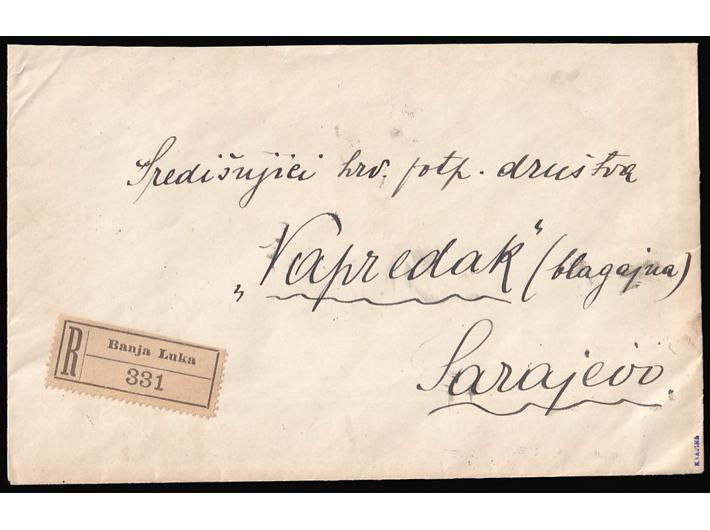 Središnjici hrv. potp. društva
„Napredak“ (blagajna)
Sarajevo.
R
Banja Luka
331